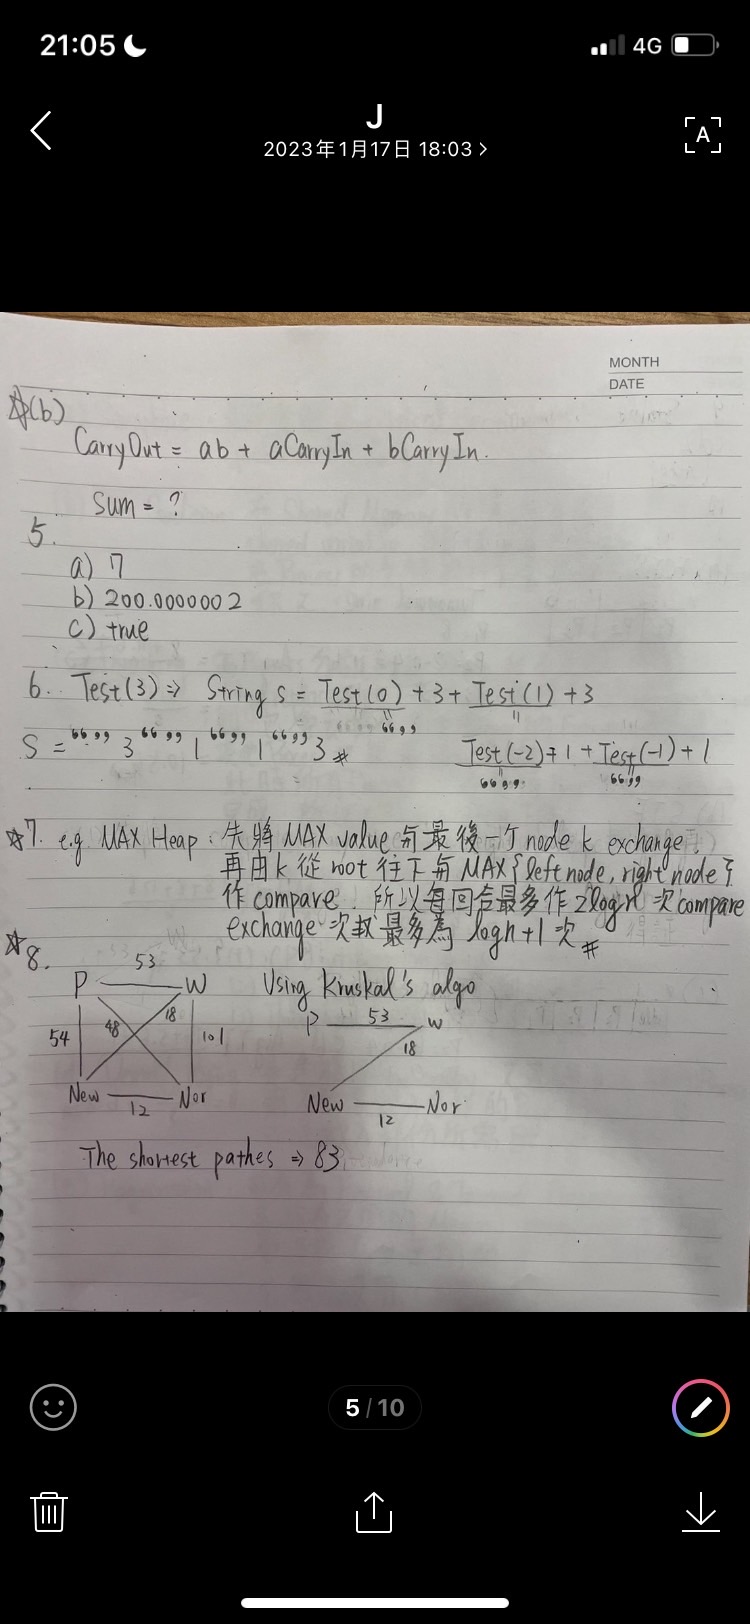 21:05
4G
J
2023年1月17日 18:03 >
A
MONTH
DATE
☆(b)
CarryOut = ab + aCarryIn + bCarryIn.
Sum = ?
5.
a) 7
b) 200.0000002
c) true
6. Test(3) => String s = Test(0) + 3 + Test(1) + 3
"" 
S = "" 3 "" 1 "" 1 "" 3 #
Test(-2) + 1 + Test(-1) + 1
"" ""
☆7. e.g. MAX Heap : 先將 MAX value 与最後一个 node k exchange.
再由 k 從 root 往下与 MAX{left node, right node}
作 compare. 所以每回合最多作 2logn 次 compare
exchange 次数最多為 logn+1 次 #
☆8.
53
P W
54 48 18 101
New Nor
12
Using Kruskal's algo
P 53 W
18
New Nor
12
The shortest pathes => 83
5 / 10